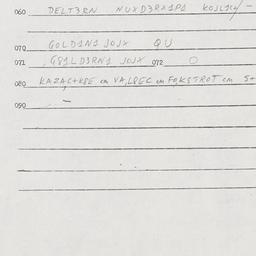 060 DELT3RN NUXD3RX1P1 KOJL1
070 GOLD1N1 JOJX QU
071 G81LD3RN1 JOJX 072 O
080 KAZAC+K8E em VA,L8EC em FOKSTROT em 5+
090 –